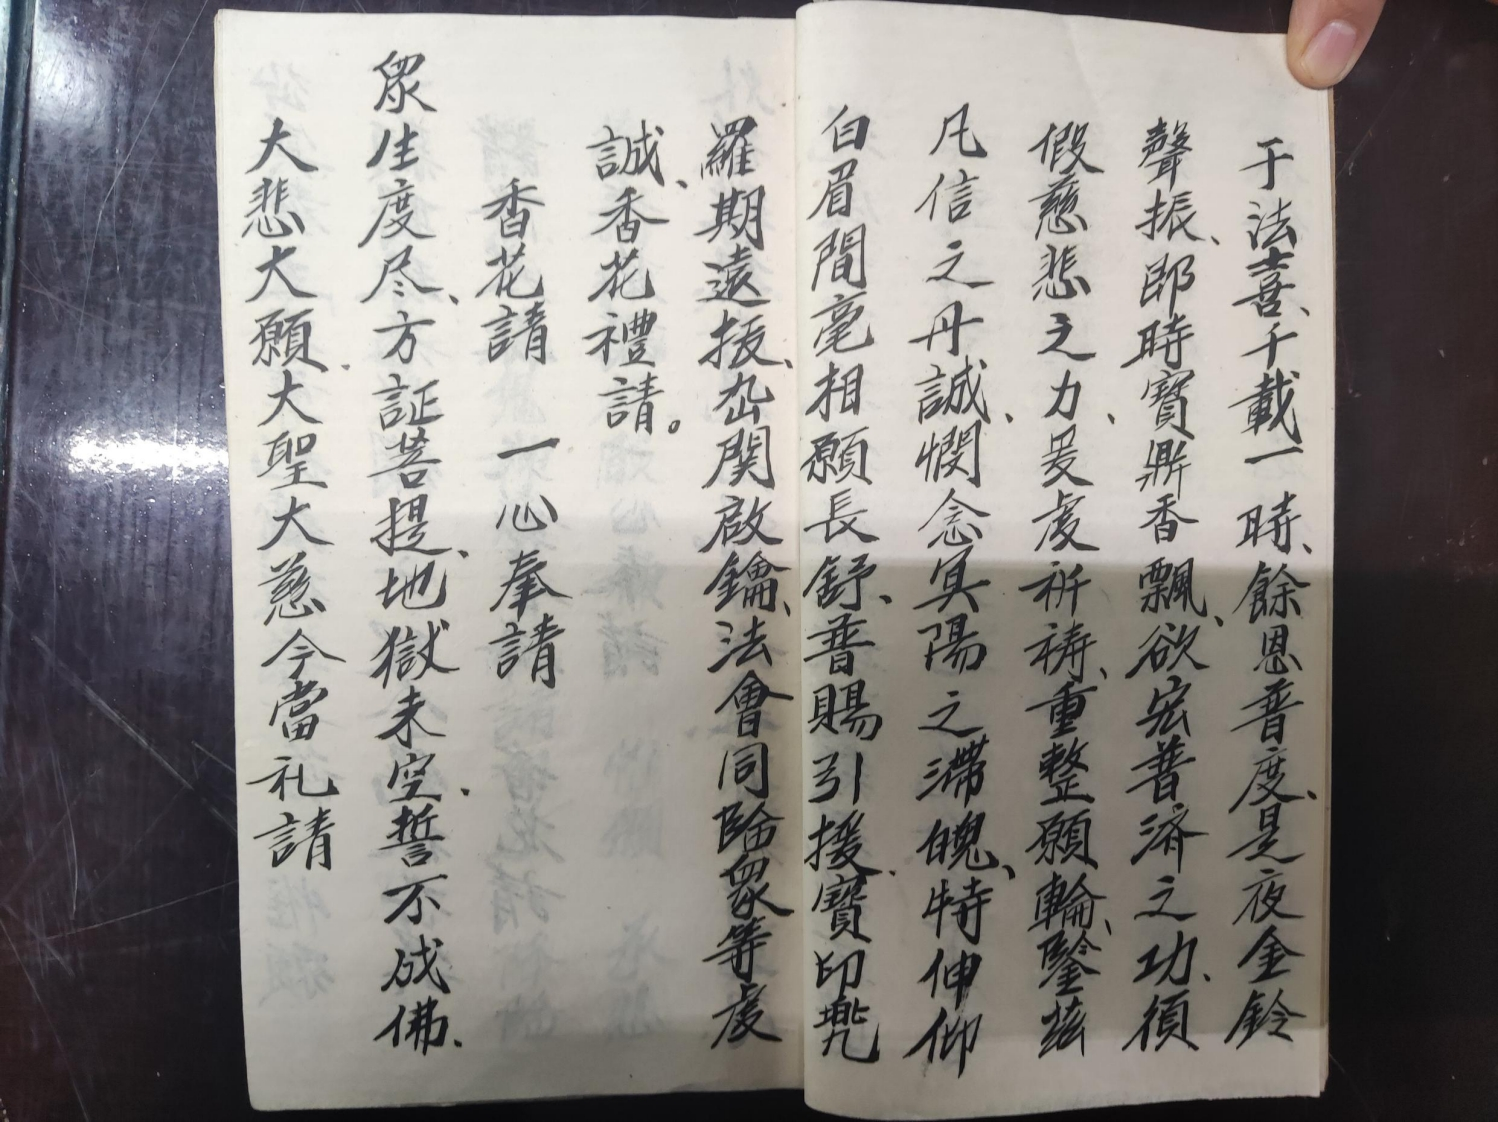 于法喜、千載一時、餘恩普度、是夜金鈴
聲振、即時寶鼎香飄、欲宏普濟之功、須
假慈悲之力、爰虔祈禱、重整願輪、鑒茲
凡信之丹誠、憫念冥陽之滯魄、特伸仰
白眉間毫相願長舒、普賜引援、寶印兠
羅期遠振、幽関啟鑰、法會同臨眾等虔
誠、香花禮請。
香花請 一心奉請
眾生度尽、方証菩提、地獄未空、誓不成佛、
大悲大願、大聖大慈今當礼請